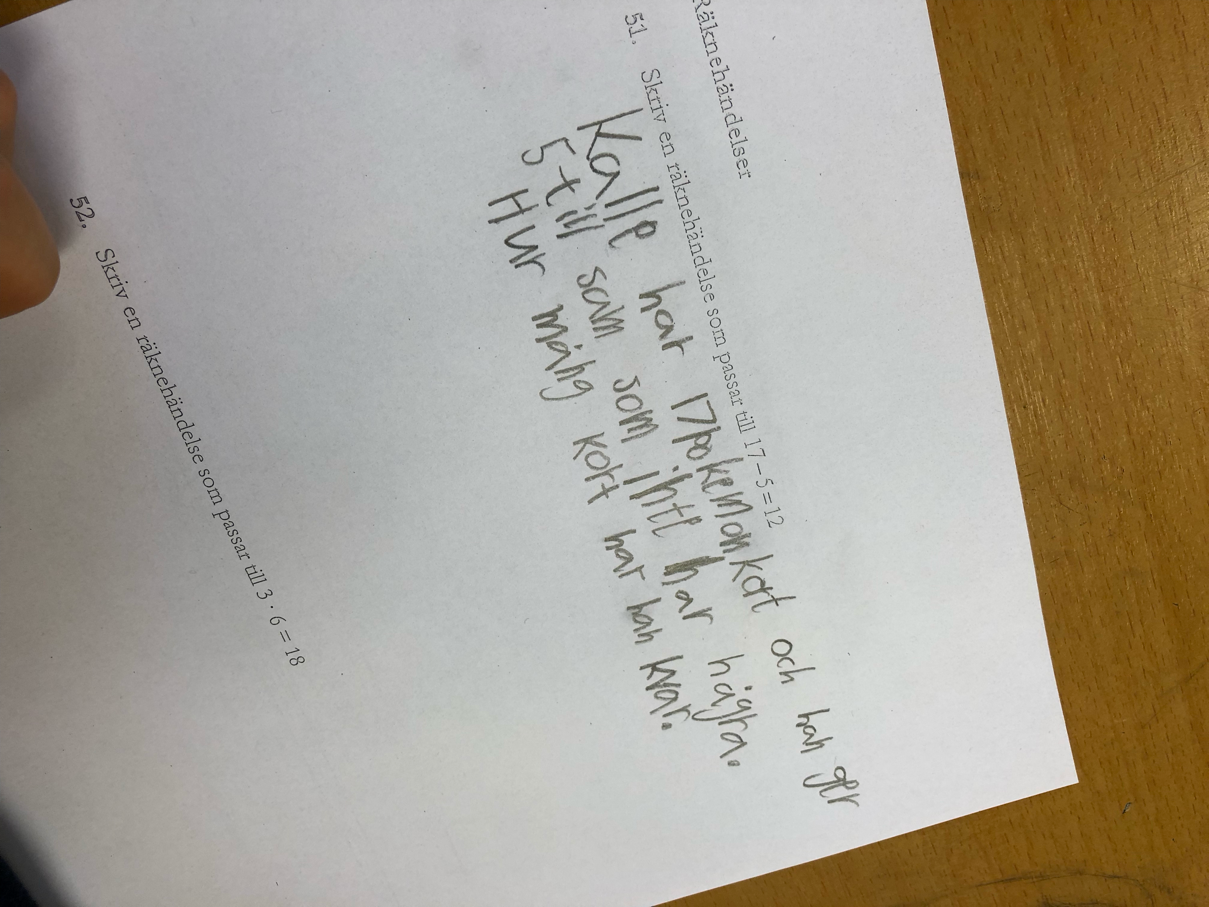 Räknehändelser
51. Skriv en räknehändelse som passar till 17 – 5 = 12
Kalle har 17 pokemonkort och han ger
5 till sam som inte har några.
Hur mång kort har han kvar.
52. Skriv en räknehändelse som passar till 3 · 6 = 18